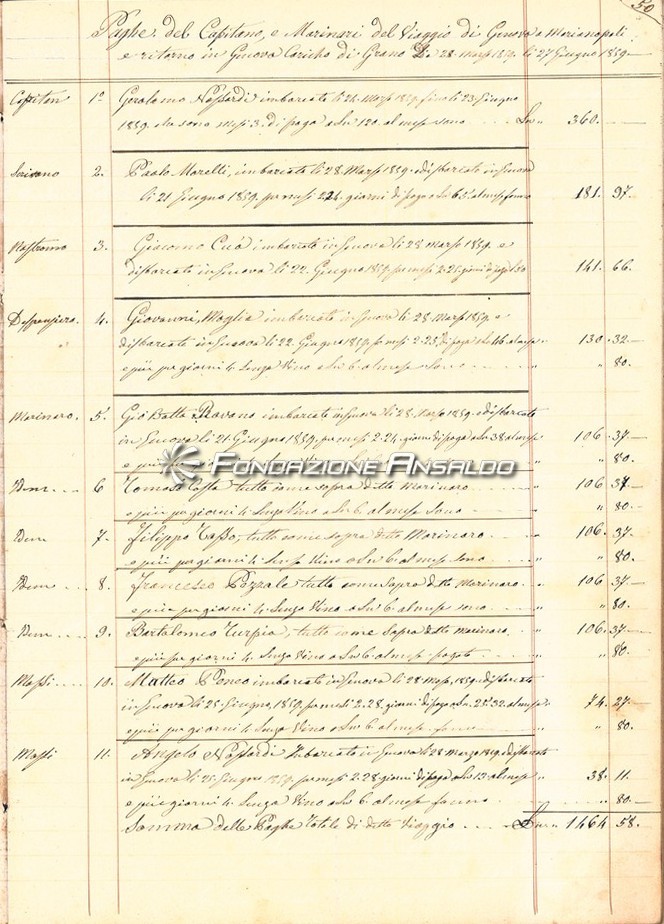 50
Paghe del Capitano, e Marinari del Viaggio di Genova a Marianopoli
e ritorno in Genova Caricho di Grano Li 28 Marzo 1859 li 27 Giugno 1859
Capitan 1º Gerolamo Nassardi imbarcato li 24 Marzo 1859 fino li 23 Giugno
1859 che sono mesi 3. di paga a Ln 120 al mese sono Ln " 360. —
Scrivano 2. Paolo Morelli, imbarcato li 28 Marzo 1859 e disbarcato in Genova
li 21 Giugno 1859. per mesi 2.24. giorni di paga a Ln 65 al mese sono 181. 97.
Nostromo 3. Giacomo Cuò imbarcato in Genova li 28 Marzo 1859. e
disbarcato in Genova li 22 Giugno 1859. per mesi 2.25 giorni di paga 141. 66.
Despensiere. 4. Giovanni, Maglia imbarcato in Genova li 28 Marzo 1859. e
disbarcato in Genova li 22 Giugno 1859. per mesi 2.25 di paga a Ln 46 al mese 130 32.
e più per giorni 4. Senza Vino a Ln 6. al mese Sono " 80.
Marinaro. 5. Gio Batta Ravano imbarcato in Genova li 28 Marzo 1859. e disbarcato
in Genova li 21 Giugno 1859. per mesi 2.24. giorni di paga a Ln 38 al mese " 106 37.
e più " " 80.
Fondazione Ansaldo
Dem 6 Tomaso Costa tutto come sopra detto Marinaro " 106 37.
e più per giorni 4. Senza Vino a Ln 6. al mese Sono " " 80.
Dem 7. Filippo Tasso, tutto come sopra detto Marinaro " 106. 37.
e più per giorni 4. Senza Vino a Ln 6. al mese sono " " 80.
Dem 8. Francesco Pozzale tutto come Sopra detto Marinaro " 106 37.
e più per giorni 4. Senza Vino a Ln 6 al mese sono " " 80.
Dem 9. Bartolomeo Turpia, tutto come Sopra detto Marinaro " 106. 37.
e più per giorni 4. Senza Vino a Ln 6 al mese pagato " " 80.
Mossi 10. Matteo imbarcato in Genova li 28 Marzo 1859. disbarcato
in Genova li 25 Giugno, 1859. per mesi 2.28. giorni di paga a Ln 25.32. al mese " 74. 27.
e più per giorni 4. Senza Vino a Ln 6. al mese sono " 80.
Mossi 11. Angelo Nassardi Imbarcato in Genova li 28 Marzo 1859. disbarcato
in Genova li 25 Giugno 1859. per mesi 2.28 giorni di paga a Ln 13 al mese " 38. 11.
e più giorni 4. Senza Vino a Ln 6. al mese sono " 80.
Somma delle Paghe totale di detto Viaggio Ln " 1464 58.